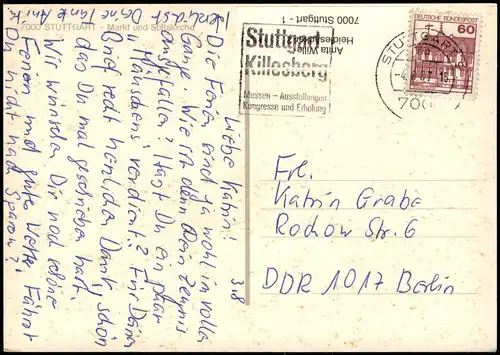 7000 STUTTGART - Markt und Stiftskirche
Anita Wille
Heidestraße
7000 Stuttgart - 1
Stuttgart
Killesberg
Messen - Ausstellungen
Kongresse und Erholung!
STUTTGART
700
DEUTSCHE BUNDESPOST
60
3.8
Liebe Katrin!
Die Ferien sind ja wohl in voller
Gange. Wie ist denn Dein Zeugnis
ausgefallen? Hast Du ein paar
"Mäuschen" verdient? Für Deinen
Brief recht herzlichen Dank, schön
das Du mal geschrieben hast.
Wir wünschen Dir noch schöne
Ferien und gutes Wetter. Fährst
Du nicht nach Sparow?
Herzlichst Deine Tante Anita
Frl.
Katrin Grabe
Rochow Str. 6
DDR 1017 Berlin